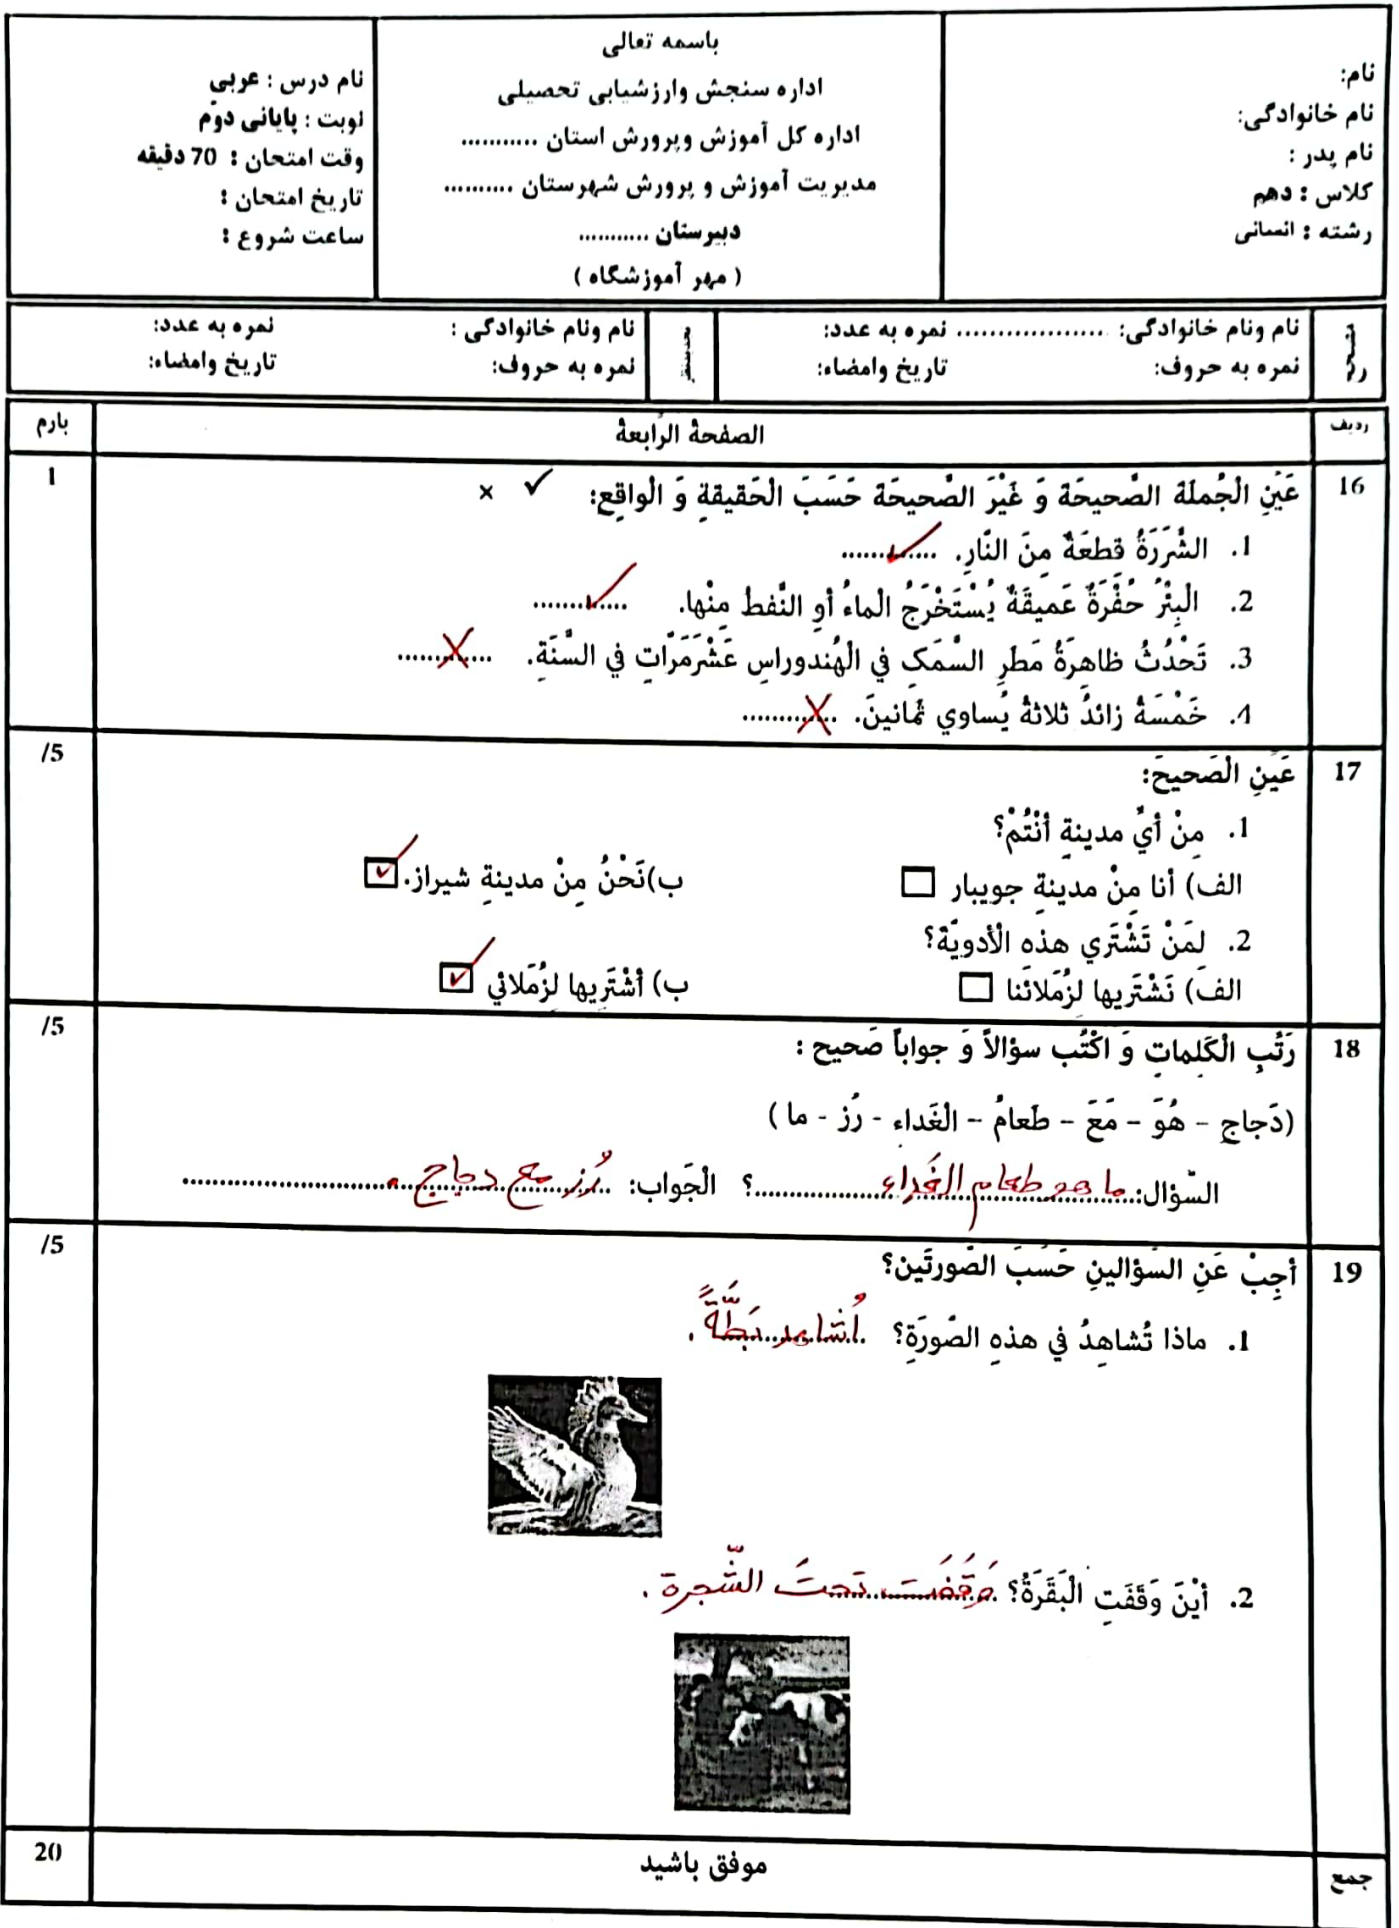 نام:
نام خانوادگی:
نام پدر :
کلاس : دهم
رشته : انسانی
باسمه تعالی
اداره سنجش وارزشیابی تحصیلی
اداره کل آموزش وپرورش استان ...........
مدیریت آموزش و پرورش شهرستان ..........
دبیرستان ...........
( مهر آموزشگاه )
نام درس : عربی
نوبت : پایانی دوّم
وقت امتحان : 70 دقیقه
تاریخ امتحان :
ساعت شروع :
مصحح
نام ونام خانوادگی: .................. نمره به عدد:
نمره به حروف: تاریخ وامضاء:
نام ونام خانوادگی : نمره به عدد:
نمره به حروف: تاریخ وامضاء:
ردیف الصفحة الرّابعة بارم
16 عَیِّنِ الْجُملَةَ الصَّحیحَةَ وَ غَیْرَ الصَّحیحَةَ حَسَبَ الْحَقیقَةِ وَ الْواقِعِ: ✓ × 1
1. الشَّرَرَةُ قِطعَةٌ مِنَ النّارِ. ............ ✓
2. الْبِئْرُ حُفْرَةٌ عَمیقَةٌ یُسْتَخْرَجُ الْماءُ أوِ النَّفطُ مِنْها. ............ ✓
3. تَحْدُثُ ظاهِرَةُ مَطَرِ السَّمَکِ في الْهُندوراسِ عَشْرَمَرّاتٍ في السَّنَةِ. ............ ×
4. خَمْسَةُ زائدُ ثلاثةُ یُساوي ثمَانینَ. ............ ×
17 عَیِّنِ الْصَحیحَ: /5
1. مِنْ أيِّ مدینةٍ أنْتُمْ؟
الف) أنا مِنْ مدینةِ جویبار □ ب)نَحْنُ مِنْ مدینةِ شیراز. ☑
2. لِمَنْ تَشْتَري هذه الْأدویَّةَ؟
الف) نَشْتَریها لِزُمَلائنا □ ب) أشْتَریها لِزُمَلائي ☑
18 رَتِّبِ الْکَلِماتِ وَ اکْتُب سؤالاً وَ جواباً صَحیح : /5
(دَجاجٍ – هُوَ – مَعَ – طَعامُ – الْغَداءِ - رُز - ما )
السّؤال: ما هو طعام الغَداءِ ؟ الْجَواب: رُز مع دجاج .
19 أجِبْ عَنِ السّؤالینِ حَسَبَ الصّورتَین؟ /5
1. ماذا تُشاهِدُ في هذهِ الصّورَةِ؟ اُشاهد بَطَّةً .
2. أیْنَ وَقَفَتِ الْبَقَرَةُ؟ وَقَفَت تحتَ الشّجرة .
جمع موفق باشید 20